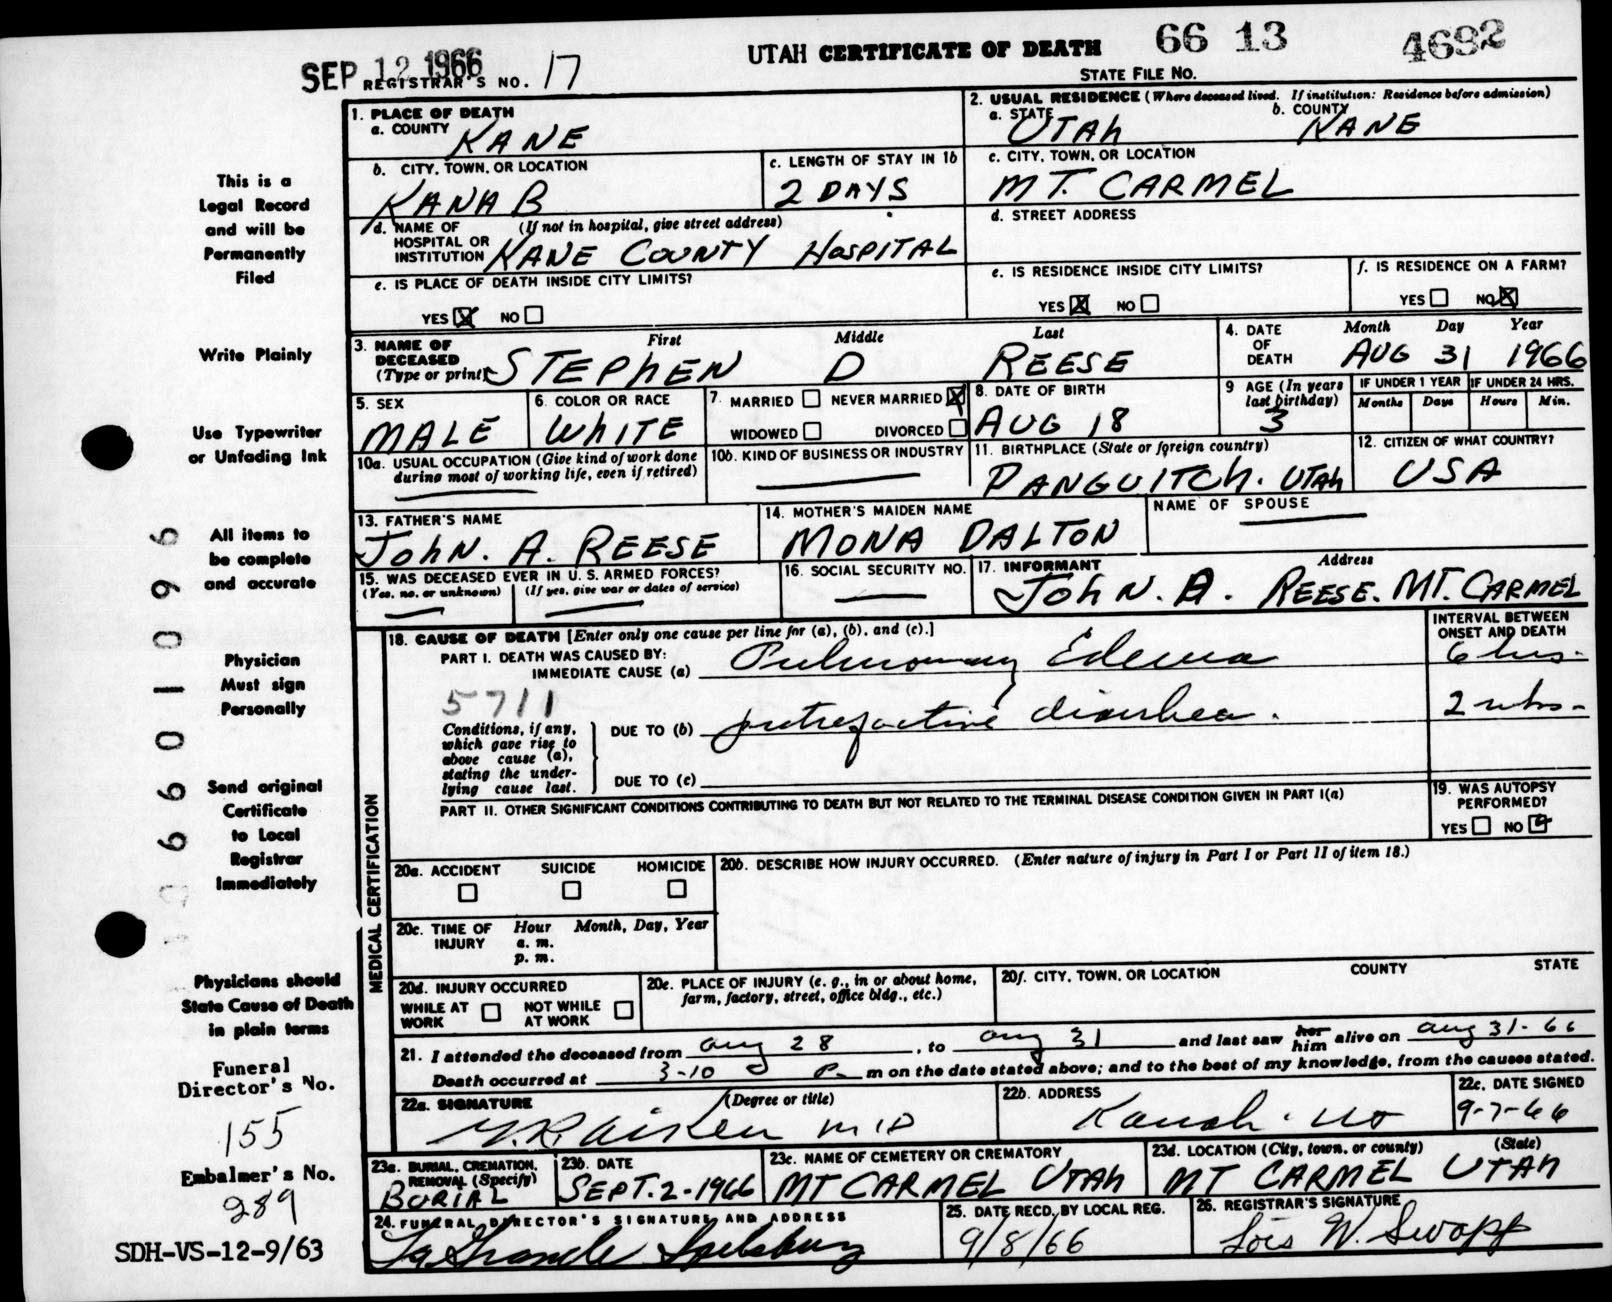 SEP 12 1966
UTAH CERTIFICATE OF DEATH
66 13 4682
REGISTRAR'S NO. 17
STATE FILE NO.
1. PLACE OF DEATH
a. COUNTY KANE
2. USUAL RESIDENCE (Where deceased lived. If institution: Residence before admission)
a. STATE UTAH b. COUNTY KANE
b. CITY, TOWN, OR LOCATION KANAB
c. LENGTH OF STAY IN 1b 2 DAYS
c. CITY, TOWN, OR LOCATION MT. CARMEL
d. NAME OF HOSPITAL OR INSTITUTION (If not in hospital, give street address) KANE COUNTY HOSPITAL
d. STREET ADDRESS
e. IS PLACE OF DEATH INSIDE CITY LIMITS?
YES NO
e. IS RESIDENCE INSIDE CITY LIMITS?
YES NO
f. IS RESIDENCE ON A FARM?
YES NO
3. NAME OF DECEASED (Type or print)
First Middle Last
STEPHEN D REESE
4. DATE OF DEATH
Month Day Year
AUG 31 1966
5. SEX MALE
6. COLOR OR RACE WHITE
7. MARRIED NEVER MARRIED
WIDOWED DIVORCED
8. DATE OF BIRTH AUG 18
9 AGE (In years last birthday) 3
IF UNDER 1 YEAR IF UNDER 24 HRS.
Months Days Hours Min.
10a. USUAL OCCUPATION (Give kind of work done during most of working life, even if retired)
10b. KIND OF BUSINESS OR INDUSTRY
11. BIRTHPLACE (State or foreign country) PANGUITCH. UTAH
12. CITIZEN OF WHAT COUNTRY? USA
13. FATHER'S NAME JOHN. A. REESE
14. MOTHER'S MAIDEN NAME MONA DALTON
NAME OF SPOUSE
15. WAS DECEASED EVER IN U. S. ARMED FORCES?
(Yes, no, or unknown) (If yes, give war or dates of service)
16. SOCIAL SECURITY NO.
17. INFORMANT Address
JOHN. A. REESE. MT. CARMEL
18. CAUSE OF DEATH [Enter only one cause per line for (a), (b), and (c).]
INTERVAL BETWEEN ONSET AND DEATH
PART I. DEATH WAS CAUSED BY:
IMMEDIATE CAUSE (a) Pulmonary Edema 6 hrs.
5711
Conditions, if any, which gave rise to above cause (a), stating the underlying cause last.
DUE TO (b) putrefactive diarrhea.
DUE TO (c)
PART II. OTHER SIGNIFICANT CONDITIONS CONTRIBUTING TO DEATH BUT NOT RELATED TO THE TERMINAL DISEASE CONDITION GIVEN IN PART I(a)
19. WAS AUTOPSY PERFORMED?
YES NO
MEDICAL CERTIFICATION
20a. ACCIDENT SUICIDE HOMICIDE
20b. DESCRIBE HOW INJURY OCCURRED. (Enter nature of injury in Part I or Part II of item 18.)
20c. TIME OF INJURY Hour Month, Day, Year
a. m.
p. m.
20d. INJURY OCCURRED
WHILE AT WORK NOT WHILE AT WORK
20e. PLACE OF INJURY (e. g., in or about home, farm, factory, street, office bldg., etc.)
20f. CITY, TOWN, OR LOCATION COUNTY STATE
21. I attended the deceased from Aug 28, to Aug 31 and last saw her him alive on Aug 31-66
Death occurred at 3-10 P. m on the date stated above; and to the best of my knowledge, from the causes stated.
22a. SIGNATURE (Degree or title)
Aiken MD
22b. ADDRESS Kanab
22c. DATE SIGNED 9-7-66
23a. BURIAL, CREMATION, REMOVAL (Specify) BURIAL
23b. DATE SEPT. 2-1966
23c. NAME OF CEMETERY OR CREMATORY MT CARMEL UTAH
23d. LOCATION (City, town, or county) (State) MT CARMEL UTAH
24. FUNERAL DIRECTOR'S SIGNATURE AND ADDRESS
Spilsbury
25. DATE RECD. BY LOCAL REG. 9/8/66
26. REGISTRAR'S SIGNATURE Lois W. Swapp
This is a
Legal Record
and will be
Permanently
Filed
Write Plainly
Use Typewriter
or Unfading Ink
All items to
be complete
and accurate
Physician
Must sign
Personally
Send original
Certificate
to Local
Registrar
Immediately
Physicians should
State Cause of Death
in plain terms
Funeral
Director's No.
155
Embalmer's No.
289
SDH-VS-12-9/63